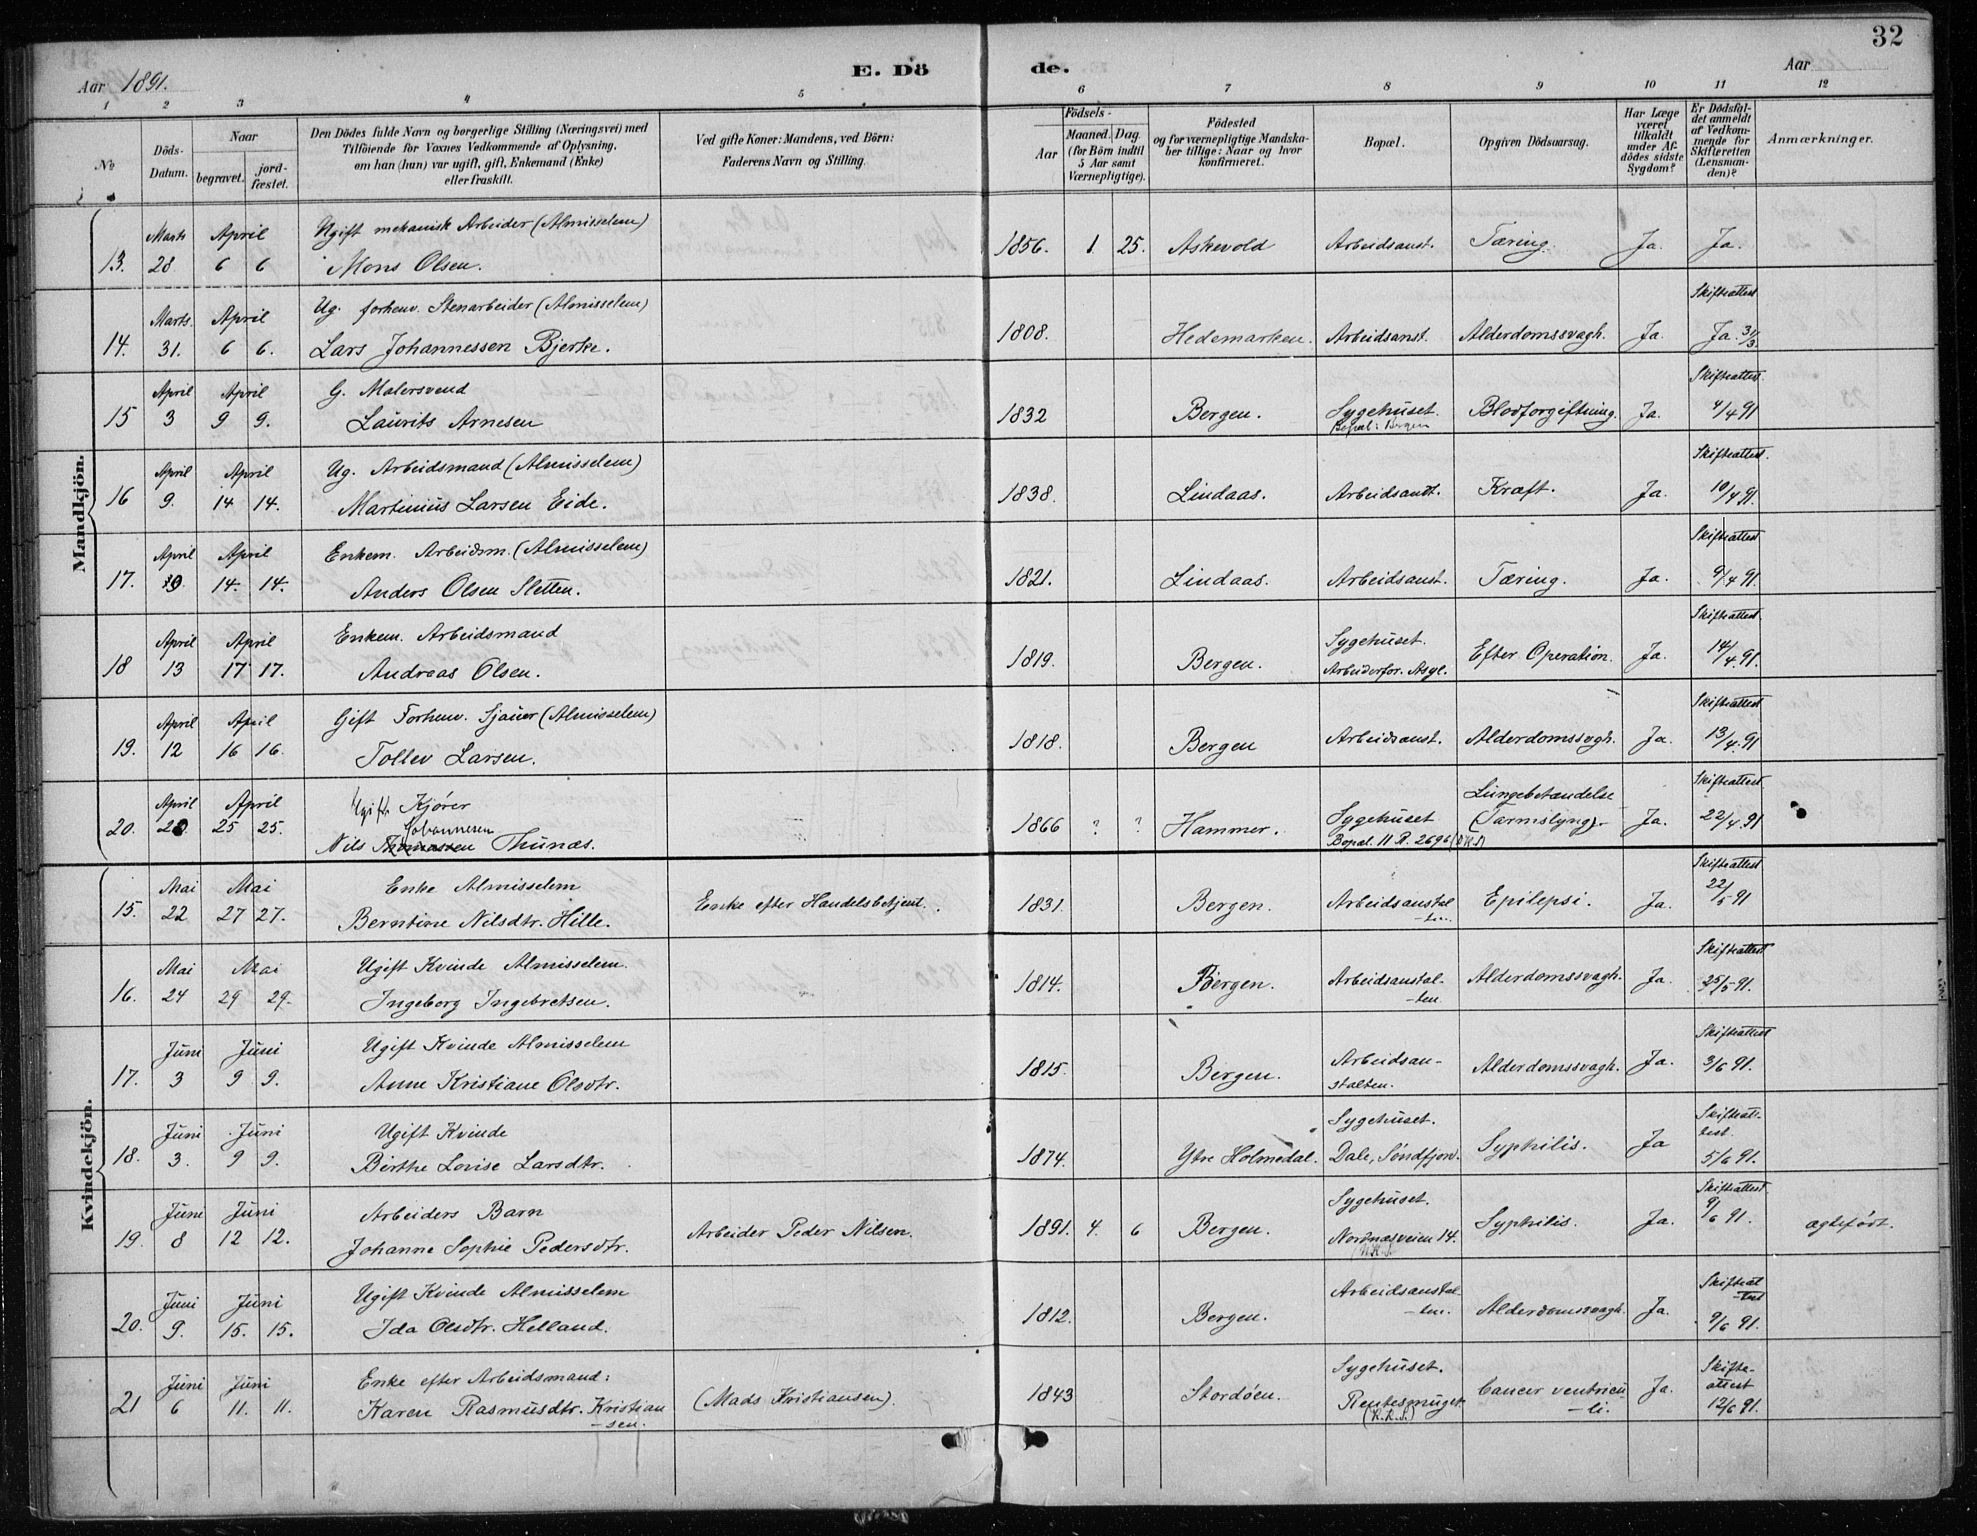 32
Aar 1891.
E. Dö
de.
Aar
1 2 3 4 5 6 7 8 9 10 11 12
№
Döds-
Datum.
Naar
begravet.
jord-
fæstet.
Den Dödes fulde Navn og borgerlige Stilling (Næringsvei) med
Tilföiende for Voxnes Vedkommende af Oplysning,
om han (hun) var ugift, gift, Enkemand (Enke)
eller fraskilt.
Ved gifte Koner: Mandens, ved Börn:
Faderens Navn og Stilling.
Födsels-
Aar
Maaned. Dag.
(for Börn indtil
5 Aar samt
Værnepligtige).
Födested
og for værnepligtige Mandska-
ber tillige: Naar og hvor
konfirmeret.
Bopæl.
Opgiven Dödsaarsag.
Har Læge
været
tilkaldt
under Af-
dödes sidste
Sygdom?
Er Dödsfal-
det anmeldt
af Vedkom-
mende for
Skifteretten
(Lensman-
den)?
Anmærkninger.
Mandkjön.
Marts April Ugift mekanisk Arbeider (Almisselem)
13. 28 6 6 Mons Olsen. 1856. 1. 25. Askevold Arbeidsanst. Tæring. Ja. Ja.
Marts April Ug. forhenv. Stenarbeider (Almisselem) Skifteattest
14. 31. 6 6. Lars Johannessen Bjerke. 1808. Hedemarken. Arbeidsanst. Alderdomssvagh. Ja. Ja. 31/3
April April G. Malersvend Skifteattest.
15 3 9 9. Laurits Arnesen 1832 Bergen. Sygehuset. Blodforgiftning. Ja. 4/4 91
Bopæl: Bergen
April April Ug. Arbeidsmand (Almisselem) Skifteattest.
16 9. 14 14. Martinus Larsen Eide. 1838. Lindaas. Arbeidsanst. Kræft. Ja. 10/4 91.
April April Enkem. Arbeidsm. (Almisselem) Skifteattest
17. 14. 14. Anders Olsen Sletten. 1821. Lindaas. Arbeidsanst. Tæring. Ja. 9/4 91.
April April Enkem. Arbeidsmand Sygehuset. Skifteattest
18 13 17 17. Andreas Olsen. 1819. Bergen. Arbeiderfor. Asyl. Efter Operation. Ja. 14/4 91.
April April Gift Forhenv. Sjauer (Almisselem) Skifteattest
19. 12 16 16. Tollev Larsen. 1818. Bergen Arbeidsanst. Alderdomssvgh. Ja. 13/4 91
April April Ugift Kjører Lungebetændelse Skifteattest
20. 20 25 25. Johannesen 1866 ? ? Hammer. Sygehuset (Tarmslyng). Ja. 22/4 91
Nils Thomassen Thunæs. Bopæl. 11 R. 26 96 (D.K.S)
Kvindekjön.
Mai Mai Enke Almisselem Skifteattest
15. 22 27 27. Berntine Nilsdtr. Hille. Enke efter Handelsbetjent. 1831. Bergen. Arbeidsanstal-ten. Epilepsi. Ja. 22/5 91
Mai Mai Ugift Kvinde Almisselem. Skifteattest
16. 24 29 29. Ingeborg Ingebretsen. 1814. Bergen. Arbeidsanstal-ten. Alderdomssvagh. Ja. 25/5 91.
Juni Juni Ugift Kvinde Almisselem Skifteattest
17. 3 9 9. Anne Kristiane Olsdtr. 1815. Bergen. Arbeidsan-stalten. Alderdomssvagh. Ja. 3/6 91.
Juni Juni Ugift Kvinde Sygehuset. Skifteat-test.
18. 3. 9 9. Birthe Lovise Larsdtr. 1874. Ytre Holmedal. Dale, Søndfjord. Syphilis. Ja 5/6 91.
Juni Juni Arbeiders Barn Sygehuset. Skifteattest
19. 8 12 12. Johanne Sophie Pedersdtr. Arbeider Peder Nilsen. 1891. 4. 6 Bergen. Nordnæsveien 14. Syphilis. Ja. 9/6 91. ægteført.
Juni Juni Ugift Kvinde Almisselem Arbeidsanstal-ten. Skifteat-test
20. 9. 15. 15. Ida Olsdtr. Helland. 1812. Bergen. Alderdomssvagh. Ja. 9/6 91.
Juni Juni Enke efter Arbeidsmand: Sygehuset. Skifte-attest
21 6 11. 11. Karen Rasmusdtr. Kristian-sen. (Mads Kristiansen). 1843 Stordöen. Rentesmuget. Cancer ventricu-li. Ja. 12/6 91.